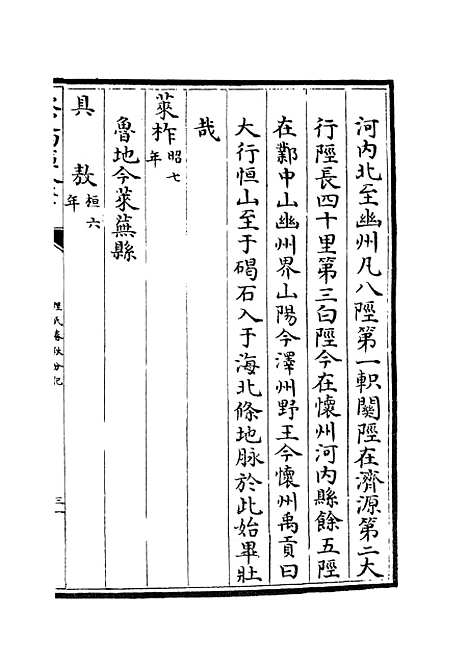 河内北至幽州凡八陘第一軹關陘在濟源第二大
行陘長四十里第三白陘今在懷州河内縣餘五陘
在鄴中山幽州界山陽今澤州野王今懷州禹貢曰
大行恒山至于碣石入于海北條地脉於此始畢壯
哉
萊柞昭七年
魯地今萊蕪縣
具敖桓六年
程氏春秋分記
三一